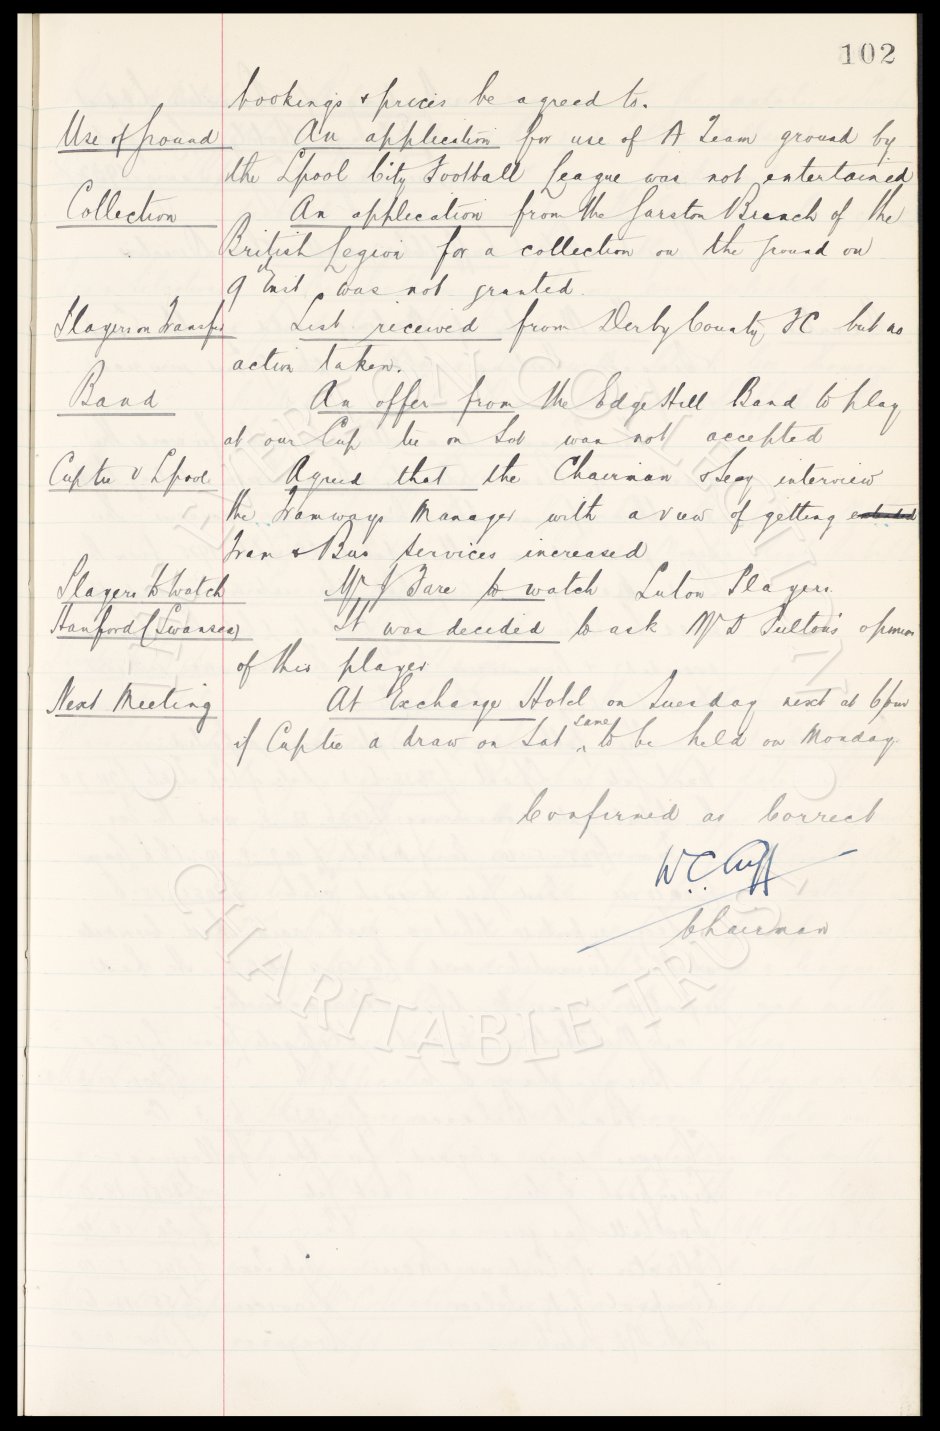 102
bookings & prices be agreed to.
Use of ground An application for use of A Team ground by
the Lpool City Football League was not entertained
Collection An application from the Garston Branch of the
British Legion for a collection on the ground on
9th Inst was not granted
Players on Transfer List received from Derby County FC but no
action taken.
Band An offer from the Edge Hill Band to play
at our Cup tie on Sat was not accepted
Cup tie v Lpool Agreed that the Chairman & Secy interview
the Tramways Manager with a view of getting extended
Tram & Bus Services increased
Players to Watch Mr J Fare to watch Luton Players.
Hanford (Swansea) It was decided to ask Mr D opinion
of this player
Next Meeting At Exchange Hotel on Tuesday next at 6pm
if Cup tie a draw on Sat same to be held on Monday
Confirmed as Correct
W.C. Cuff
Chairman
EVERTON COLLECTION
CHARITABLE TRUST